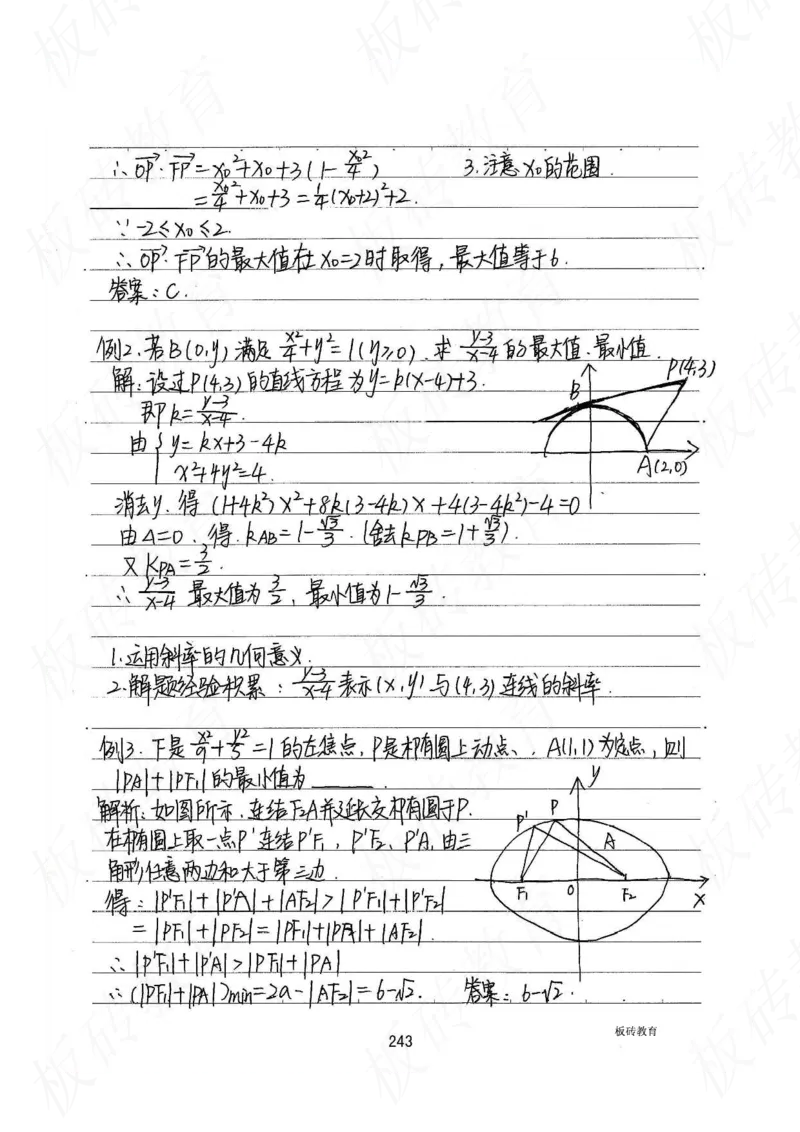 ∴ OP·FP = x₀²+x₀+3(1-x₀²/4) 3.注意x₀的范围.
= x₀²/4+x₀+3 = 1/4(x₀+2)²+2.
∵ -2≤x₀≤2.
∴ OP·FP的最大值在x₀=2时取得,最大值等于6.
答案:C.
例2.若B(0,y)满足 x²/4+y²=1(y≥0).求 y-3/x-4 的最大值、最小值.
解:设过P(4,3)的直线方程为y=k(x-4)+3.
即k= y-3/x-4.
由{y=kx+3-4k
x²+4y²=4.
P(4,3)
B
A(2,0)
消去y.得 (1+4k²)x²+8k(3-4k)x+4(3-4k²)-4=0
由Δ=0.得.kAB=1-√3/3.(舍去kPB=1+√3/3).
又KPA=3/2.
∴ y-3/x-4 最大值为3/2,最小值为1-√3/3.
1.运用斜率的几何意义.
2.解题经验积累: y-3/x-4 表示(x,y)与(4,3)连线的斜率.
例3.下是 x²/9+y²/5=1的左焦点,P是椭圆上动点、.A(1,1)为定点,则
|PA|+|PF₁|的最小值为______.
解析:如图所示,连结F₂A并延长交椭圆于P.
在椭圆上取一点P'连结P'F₁,P'F₂、P'A,由三
角形任意两边和大于第三边.
得:|P'F₁|+|P'A|+|AF₂|>|P'F₁|+|P'F₂|
=|PF₁|+|PF₂|=|PF₁|+|PA|+|AF₂|.
∴|P'F₁|+|P'A|>|PF₁|+|PA|
∴(|PF₁|+|PA|)min=2a-|AF₂|=6-√2. 答案:6-√2.
y
P'
P
A
F₁
O
F₂
x
板砖教育
243